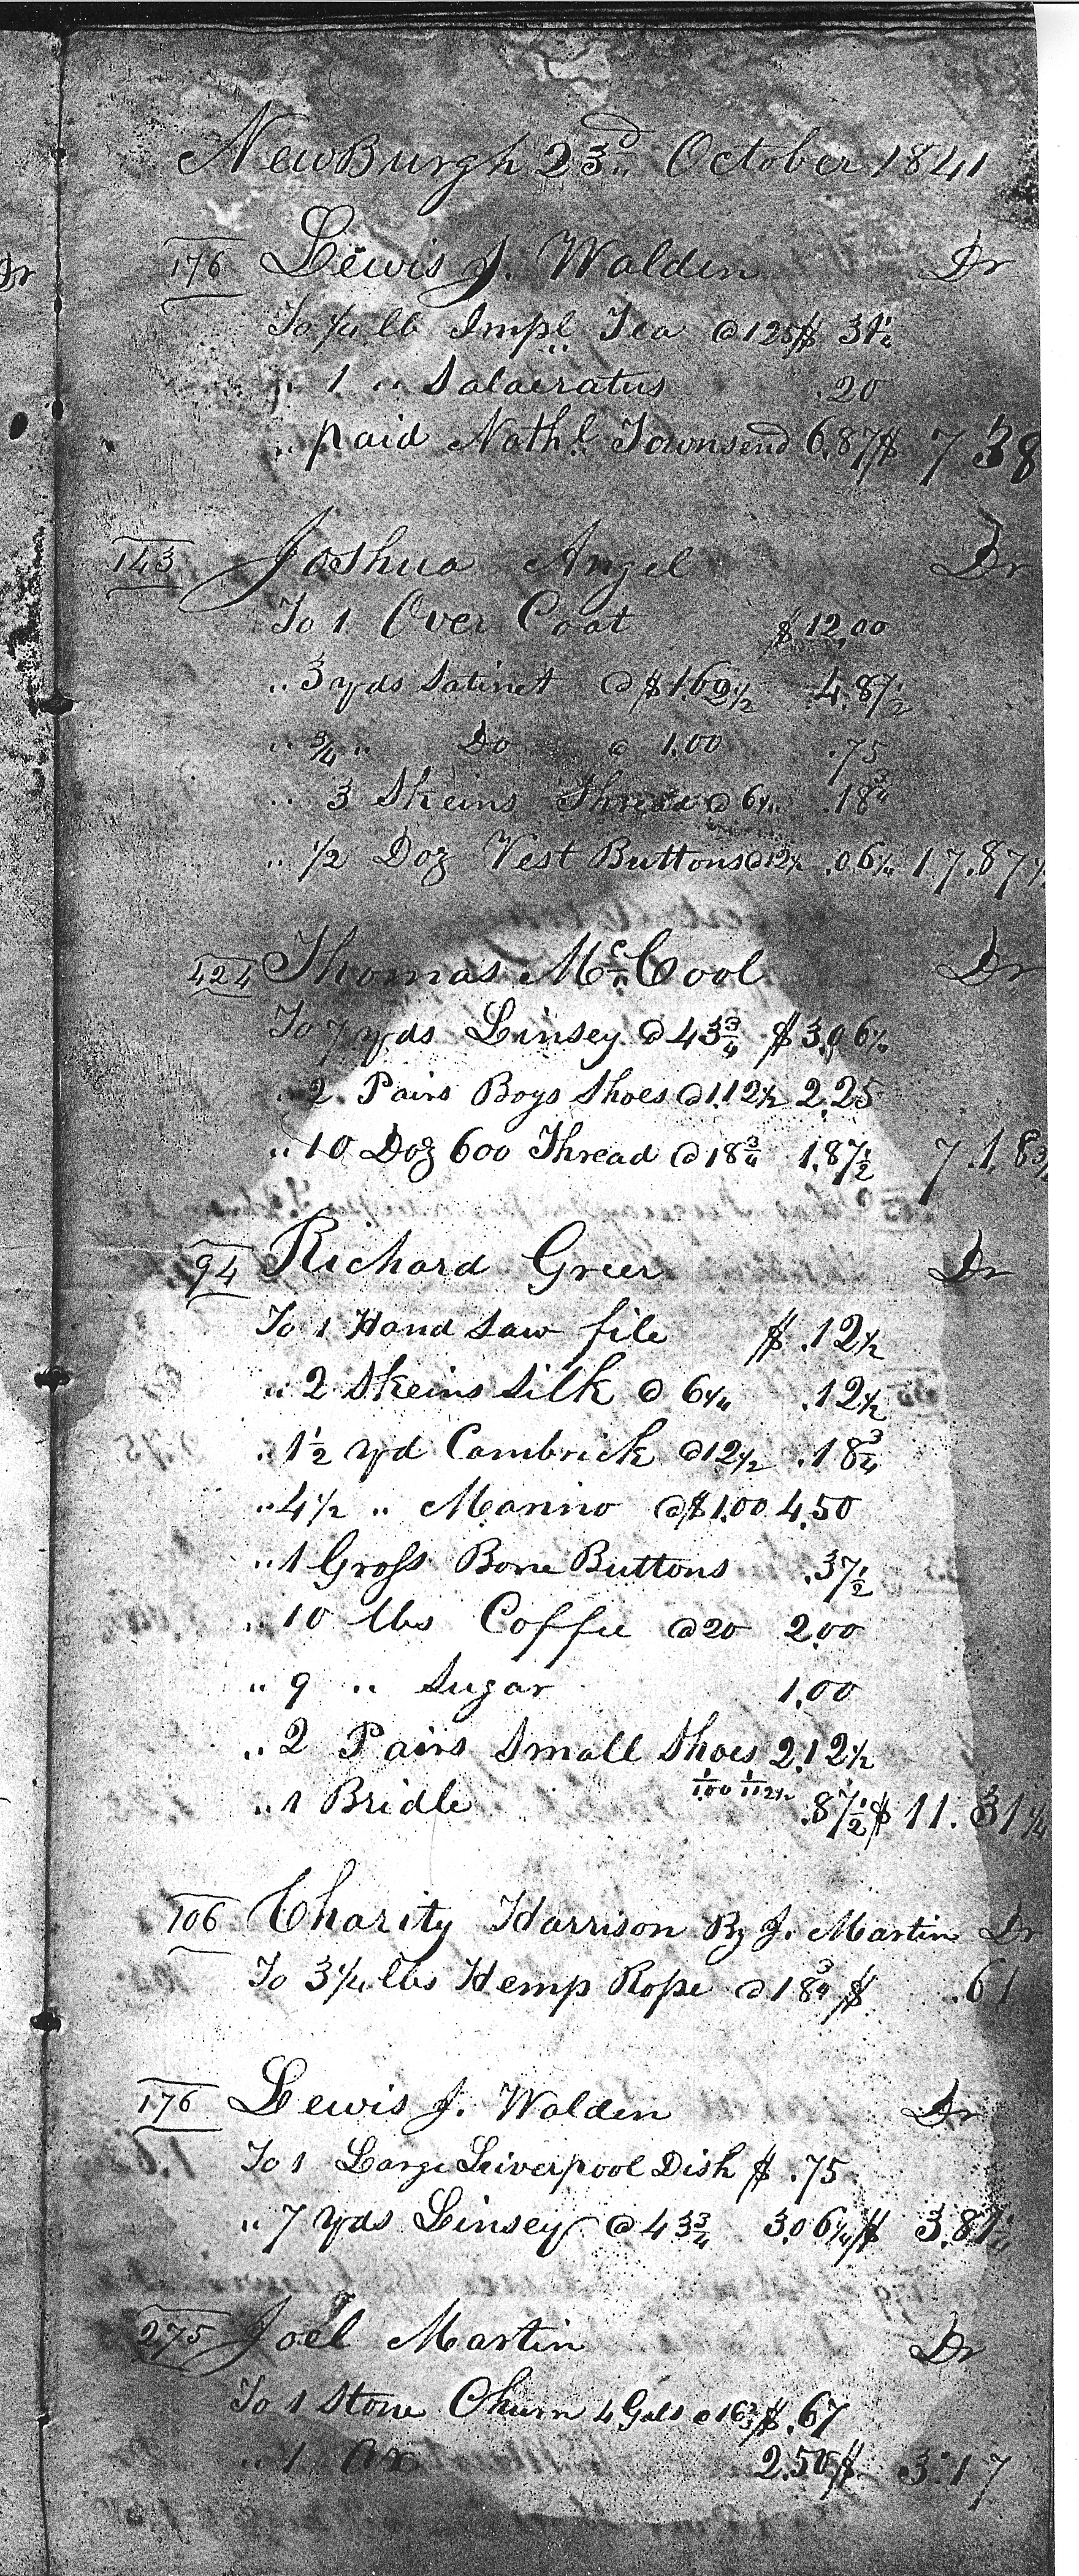 NewBurgh 23d October 1841
176 Lewis J. Walden Dr
To 1/4 lb Impl Tea @ 125 $ 31 1/4
" 1 " Salaeratus .20
" paid Nathl. Townsend 6.87 $ 7 38
143 Joshua Angel Dr
To 1 Over Coat $ 12.00
" 3 yds Satinet @ $1.62 1/2 4.87 1/2
" 3/4 " Do @ 1.00 .75
" 3 Skeins Thread @ 6 1/4 .18 3/4
" 1/2 Doz Vest Buttons @ 12 1/2 .06 1/4 17.87 1/2
424 Thomas Mc.Cool Dr
To 7 yds Linsey @ 43 3/4 $ 3.06 1/4
" 2 Pairs Boys Shoes @ 1.12 1/2 2.25
" 10 Doz 600 Thread @ 18 3/4 1.87 1/2 7.18 3/4
94 Richard Greer Dr
To 1 Hand Saw file $ .12 1/2
" 2 Skeins Silk @ 6 1/4 .12 1/2
" 1 1/2 yd Cambrick @ 12 1/2 .18 3/4
" 4 1/2 " Marino @ $1.00 4.50
" 1 Gross Bone Buttons .37 1/2
" 10 lbs Coffee @ 20 2.00
" 9 " Sugar 1.00
" 2 Pairs Small Shoes 2.12 1/2
1/100 1/112 1/2
" 1 Bridle .87 1/2 $ 11.31 1/4
106 Charity Harrison By J. Martin Dr
To 3 1/4 lbs Hemp Rope @ 18 3/4 $ .61
176 Lewis J. Walden Dr
To 1 Large Liverpool Dish $ .75
" 7 Yds Linsey @ 43 3/4 3.06 1/4 $ 3.81 1/4
275 Joel Martin Dr
To 1 Stone Churn 4 Gals @ 16 2/3 $ .67
" 1 Ax 2.50 $ 3.17